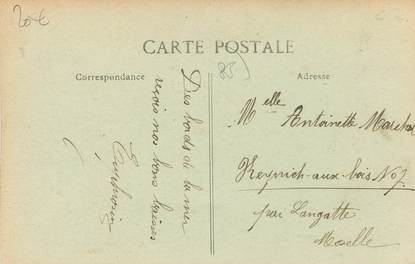 20€
CARTE POSTALE
85)
Correspondance
Adresse
Des bords de la mer
reçois nos bons baisers
Melle Antoinette
aux-bois No 7.
par Langatte
Moselle